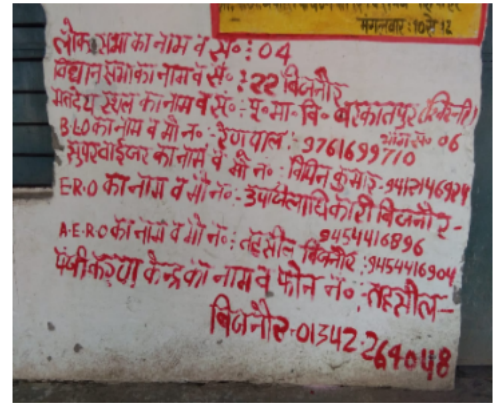 मंगलवार: 10 से 12
लोक सभा का नाम व सं॰ : 04
विधान सभा का नाम व सं॰ : 22 बिजनौर
मतदेय स्थल का नाम व सं॰ - पू॰ मा॰ वि॰ बरकातपुर
भाग सं॰ 06
B.L.O का नाम व मो नं॰ - रेणपाल : 9761699710
सुपरवाईजर का नाम व मो नं॰ - विपिन कुमार -
E.R.O का नाम व मो नं॰ - उपजिलाधिकारी बिजनौर -
9454416896
A.E.R.O का नाम व मो नं॰ : तहसील बिजनौर : 9454416904
पंजीकरण केन्द्र का नाम व फोन नं॰ : तहसील -
बिजनौर - 01342-264048